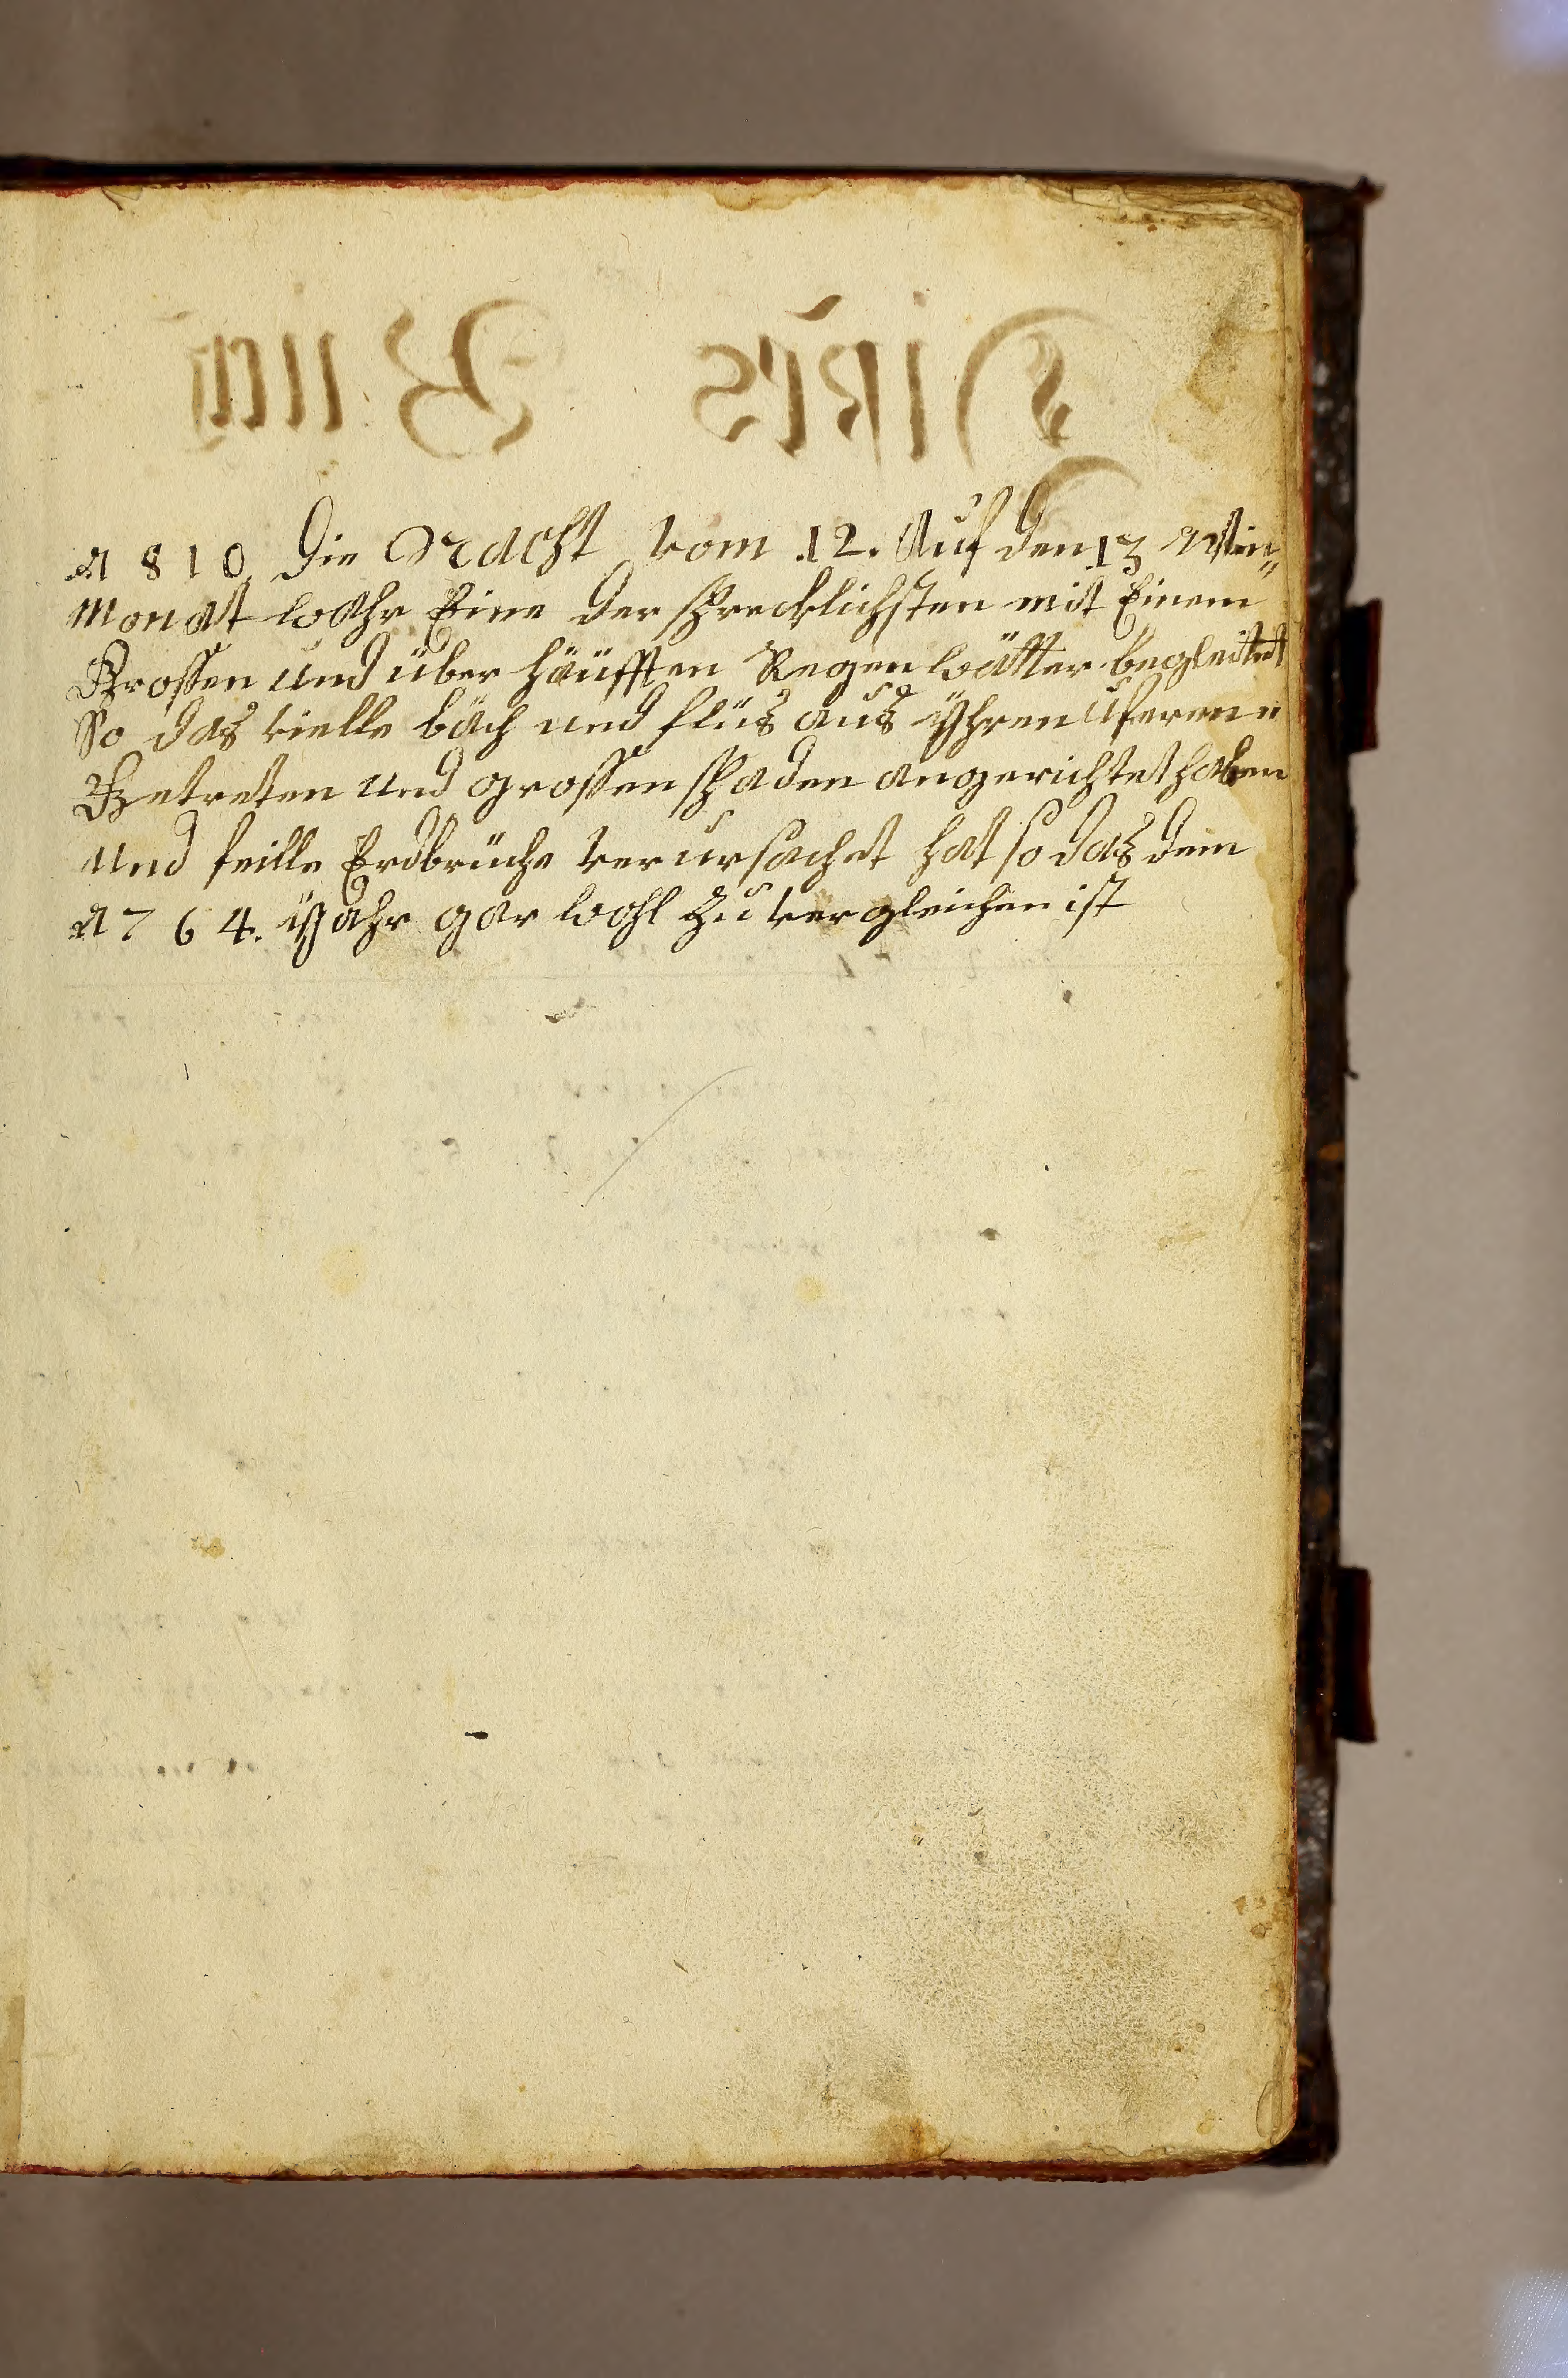 1810 Die Nacht vom 12. Auf den 13 Wein„
Monat wahr Eine der schrecklichsten mit Einem
Grossen und über häufften Regen wätter begleitet
So das vielle bäch und flüs aus yhren uferen
Getreten und grossen schaden angerichtet haben
und feille Erdbrüche verursachet hat so das dem
1764. yahr gar wohl zu vergleichen ist